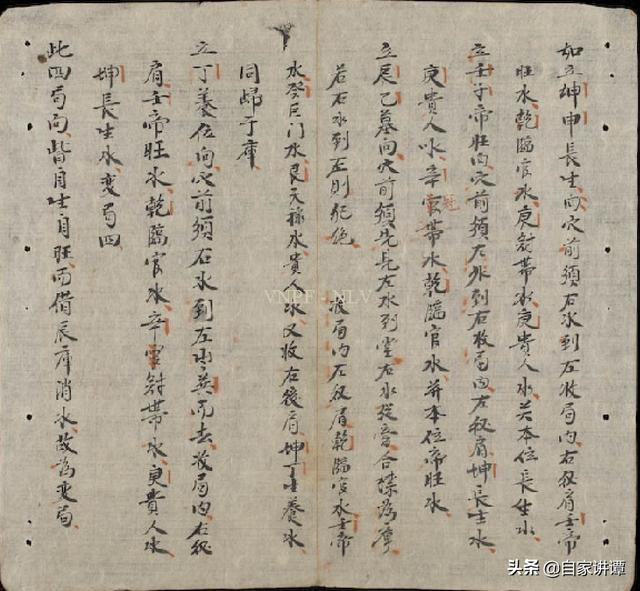 如立坤申長生向穴前須右水到左收局内右叙肩壬帝
旺水乾臨官水庚冠帶水庚貴人水关本位長生水
立壬子帝旺向穴前須左水到右收局内左叙肩坤長生水
庚貴人水辛官帶水乾臨官水并本位帝旺水
乾
立辰乙墓向穴前須先長左水到堂右水從合襟為
若右水到左則犯絶 收局内左叙肩乾臨官水壬帝
水癸巨门水艮天祿水貴人水又收右後肩坤丁養水
同歸于庫
立丁養位向穴前須右水到左而去收局内右叙
肩壬帝旺水乾臨官水辛冠帶水庚貴人水
坤長生水変局四
此四局向皆自生自旺而借辰库消水故為変局
VNPF NLV
头条 @自家讲谭